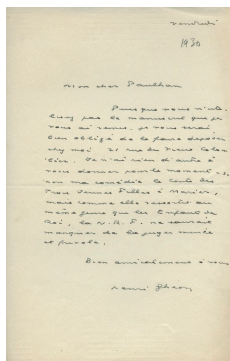 vendredi
1930
Mon cher Paulhan
Puisque vous n'uti-
lisez pas le manuscrit que je
vous ai remis, je vous serai
bien obligé de le faire déposer
chez moi 21 rue du Vieux Colom-
bier. Je n'ai rien d'autre à
vous donner pour le moment, si-
non ma comédie le Conte des
Trois Jeunes Filles à Marier,
mais comme elle ressortit au
même genre que les Enfants du
Roi, la N.R.F. ne saurait
manquer de la juger usée
et
Bien amicalement à vous
Henri Ghéon